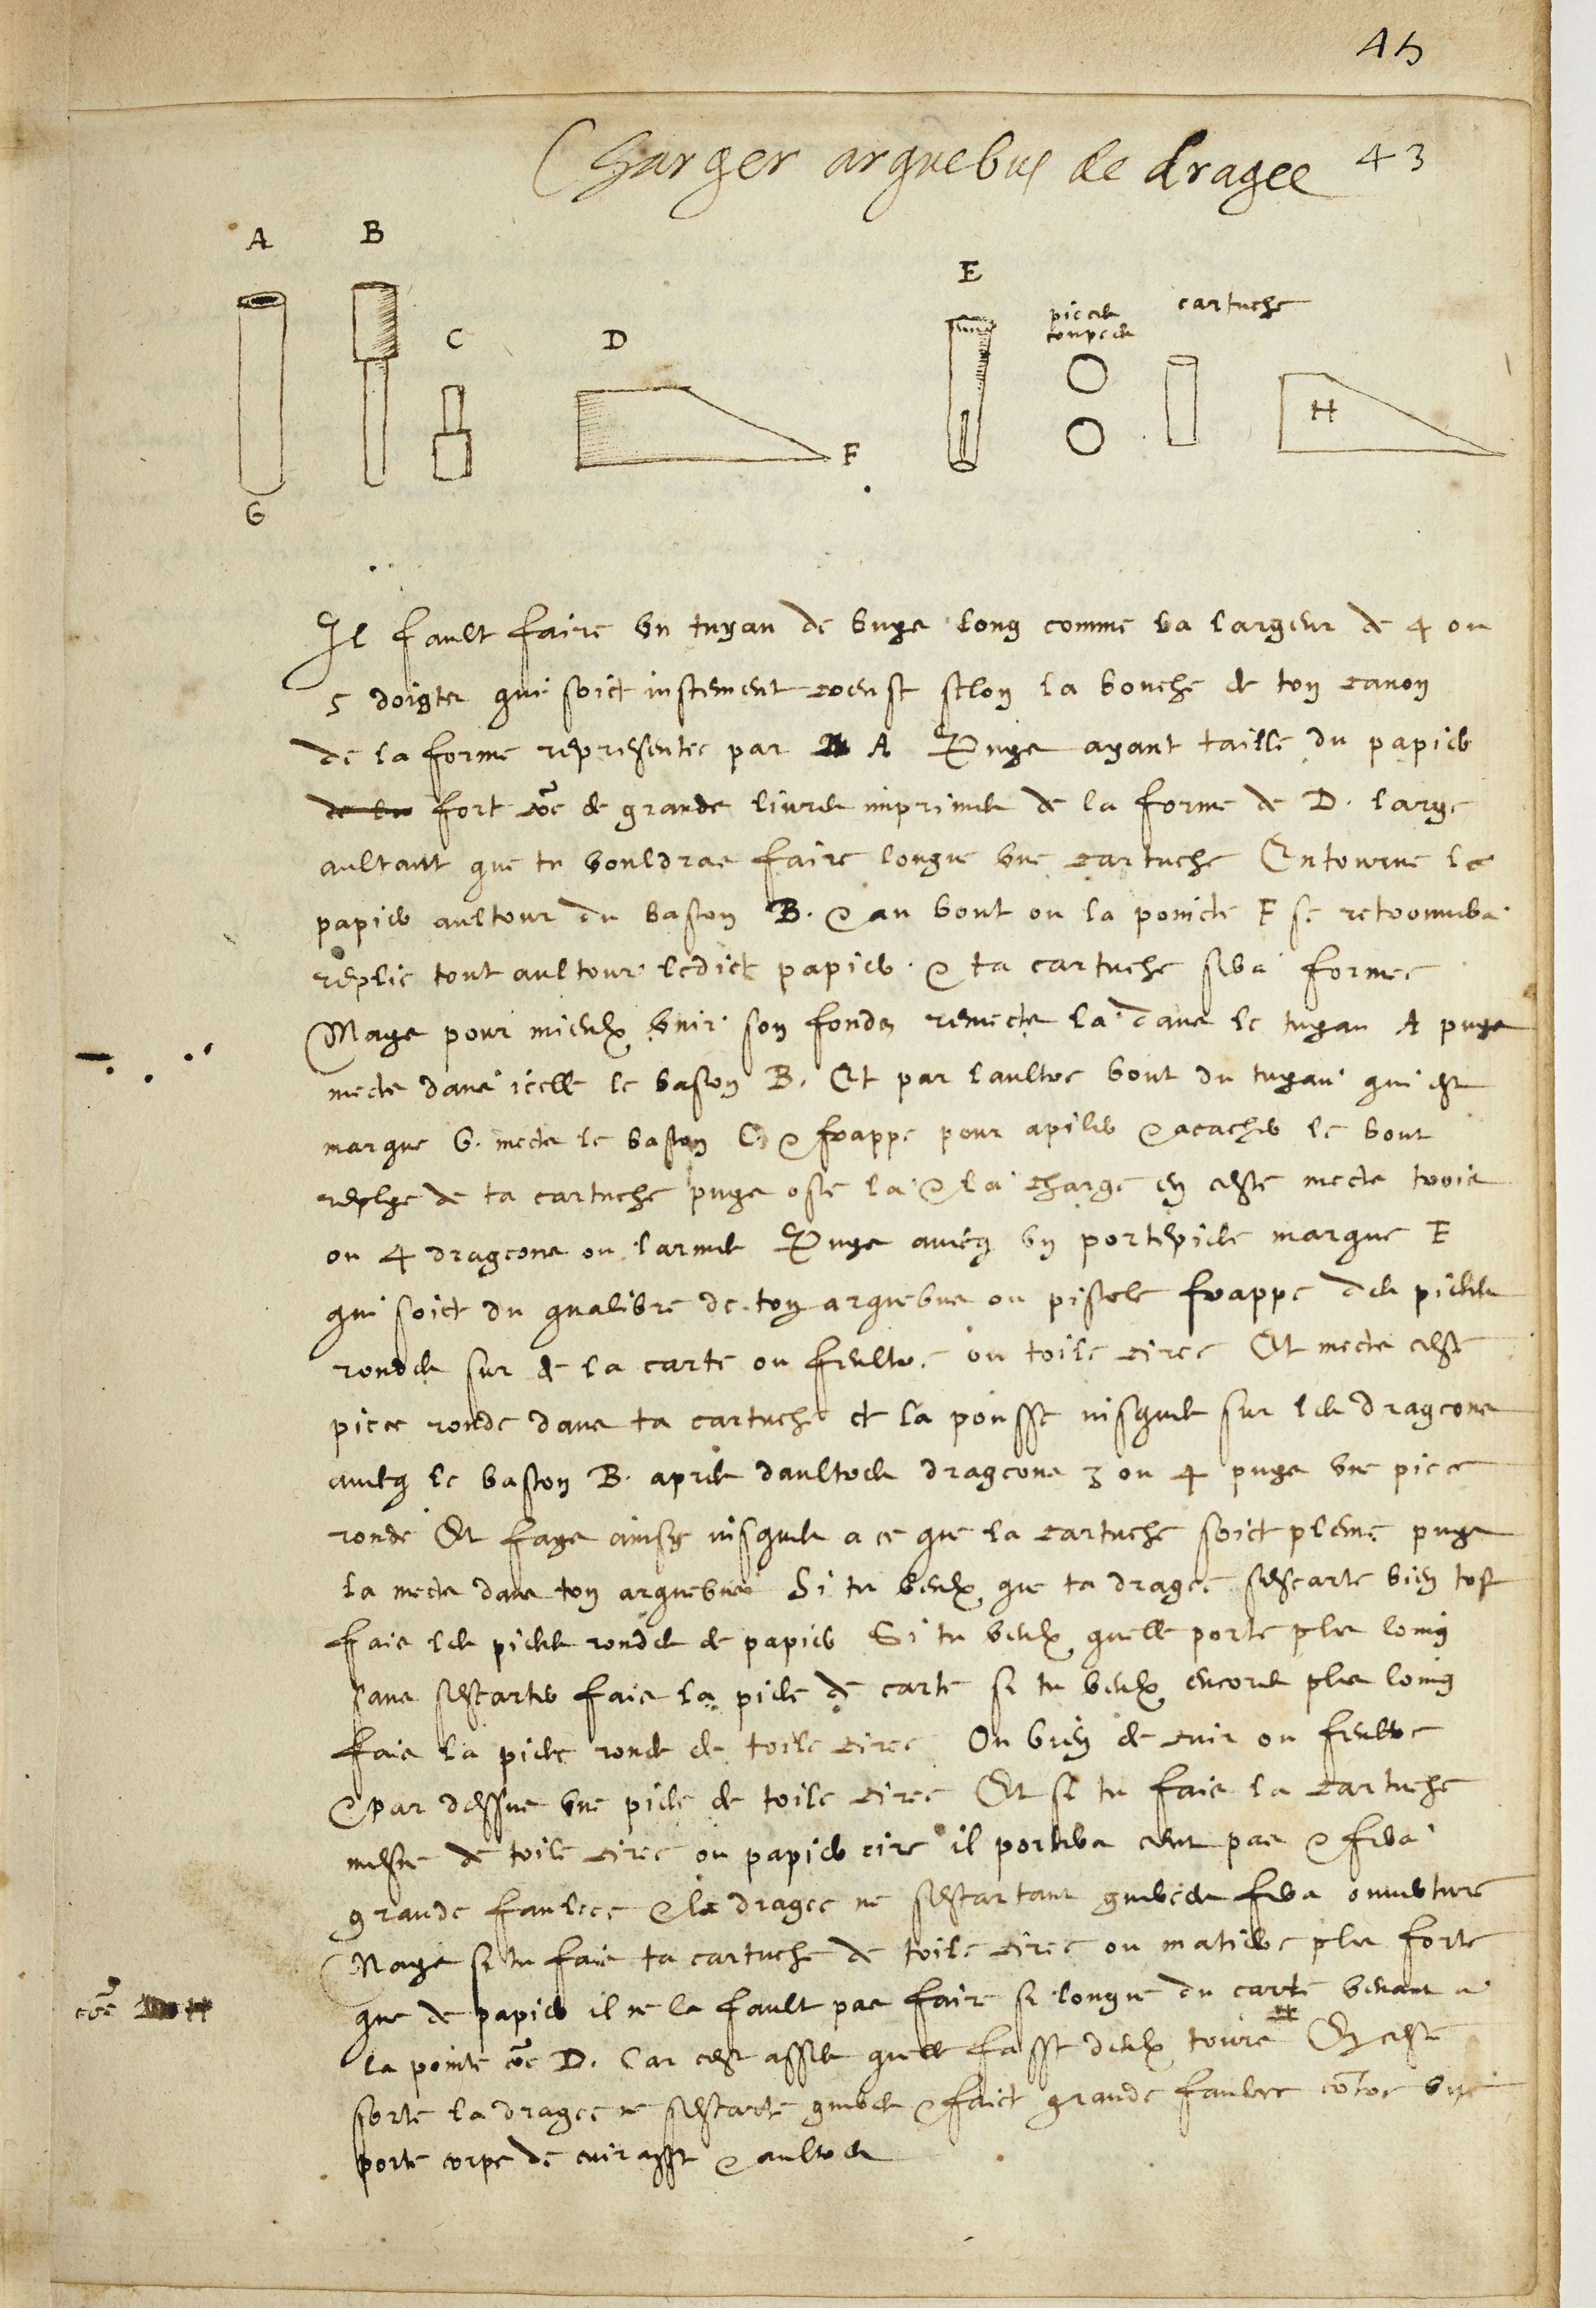 45
Charger arquebus de dragee 43
A B
E
piece coupee cartuche
C D
H
F
G
Il fault faire un tuyau de buys long comme la largeur de 4 ou
5 doigts qui soict justement creuse selon la bouche de ton canon
de la forme representee par A Puys ayant taille du papier
de la fort coe de grands livres imprimes de la forme de D. large
aultant que tu vouldras faire longue une cartuche Entourne le
papier aultour du baston B. & au bout ou la poincte F se retrouvera
replie tout aultour ledict papier & ta cartuche sera formee
Mays pour mieulx unir son fonds remects la dans le tuyau A puys
mects dans icelle le baston B. Et par laultre bout du tuyau qui est
marque G. mects le baston C. & frappe pour apiler & acacher le bout
de ta cartuche puys oste la & la charge en ceste mects trois
ou 4 drageons ou larmes Puys aveq un portepiece marque E
qui soict du qualibre de ton arquebus ou pistole frappe des pieces
rondes sur de la carte ou feultre ou toile ciree Et mects ceste
piece ronde dans ta cartuche et la pousse jusques sur les drageons
aveq le baston B. apres daultres drageons 3 ou 4 puys une piece
ronde Et fays ainsy jusques a ce que la cartuche soict pleine puys
la mects dans ton arquebus Si tu veulx que ta dragee sescarte bien tost
fais les pieces rondes de papier Si tu veulx quelle porte plus loing
sans sescarter fais la piece de carte si tu veulx encores plus loing
fais la piece ronde de toile ciree Ou bien de cuir ou feultre
& par dessus une piece de toile ciree Et si tu fais la cartuche
mesme de toile ciree ou papier cire il portera cent pas & fera
grande faulcee & la dragee ne sescartant gueres fera ouverture
Mays si tu fais ta cartuche de toile ciree ou matiere plus forte
que de papier il ne la fault pas faire si longue du carre venant a
coe H
la pointe coe D. Car cest asses quelle fasse deulx tours # En ceste
sorte la dragee ne sescarte gueres & faict grande faulcee contre une
porte corps de cuirasse & aultres